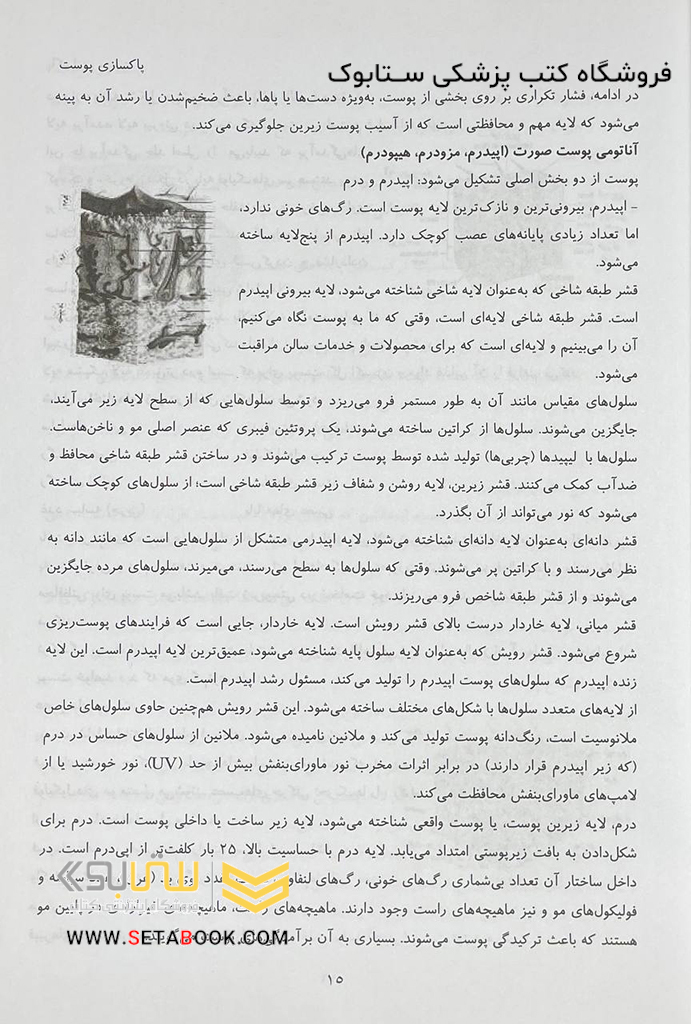 فروشگاه کتب پزشکی ستابوک
پاکسازی پوست
در ادامه، فشار تکراری بر روی بخشی از پوست، به‌ویژه دست‌ها یا پاها، باعث ضخیم‌شدن یا رشد آن به پینه
می‌شود که لایه مهم و محافظتی است که از آسیب پوست زیرین جلوگیری می‌کند.
آناتومی پوست صورت (اپیدرم، مزودرم، هیپودرم)
پوست از دو بخش اصلی تشکیل می‌شود: اپیدرم و درم
- اپیدرم، بیرونی‌ترین و نازک‌ترین لایه پوست است. رگ‌های خونی ندارد،
اما تعداد زیادی پایانه‌های عصب کوچک دارد. اپیدرم از پنج‌لایه ساخته
می‌شود.
قشر طبقه شاخی که به‌عنوان لایه شاخی شناخته می‌شود، لایه بیرونی اپیدرم
است. قشر طبقه شاخی لایه‌ای است، وقتی که ما به پوست نگاه می‌کنیم،
آن را می‌بینیم و لایه‌ای است که برای محصولات و خدمات سالن مراقبت
می‌شود.
سلول‌های مقیاس مانند آن به طور مستمر فرو می‌ریزد و توسط سلول‌هایی که از سطح لایه زیر می‌آیند،
جایگزین می‌شوند. سلول‌ها از کراتین ساخته می‌شوند، یک پروتئین فیبری که عنصر اصلی مو و ناخن‌هاست.
سلول‌ها با لیپیدها (چربی‌ها) تولید شده توسط پوست ترکیب می‌شوند و در ساختن قشر طبقه شاخی محافظ و
ضدآب کمک می‌کنند. قشر زیرین، لایه روشن و شفاف زیر قشر طبقه شاخی است؛ از سلول‌های کوچک ساخته
می‌شود که نور می‌تواند از آن بگذرد.
قشر دانه‌ای به‌عنوان لایه دانه‌ای شناخته می‌شود، لایه اپیدرمی متشکل از سلول‌هایی است که مانند دانه به
نظر می‌رسند و با کراتین پر می‌شوند. وقتی که سلول‌ها به سطح می‌رسند، می‌میرند، سلول‌های مرده جایگزین
می‌شوند و از قشر طبقه شاخص فرو می‌ریزند.
قشر میانی، لایه خاردار درست بالای قشر رویش است. لایه خاردار، جایی است که فرایندهای پوست‌ریزی
شروع می‌شود. قشر رویش که به‌عنوان لایه سلول پایه شناخته می‌شود، عمیق‌ترین لایه اپیدرم است. این لایه
زنده اپیدرم که سلول‌های پوست اپیدرم را تولید می‌کند، مسئول رشد اپیدرم است.
از لایه‌های متعدد سلول‌ها با شکل‌های مختلف ساخته می‌شود. این قشر رویش هم‌چنین حاوی سلول‌های خاص
ملانوسیت است، رنگ‌دانه پوست تولید می‌کند و ملانین نامیده می‌شود. ملانین از سلول‌های حساس در درم
(که زیر اپیدرم قرار دارند) در برابر اثرات مخرب نور ماورای‌بنفش بیش از حد (UV)، نور خورشید یا از
لامپ‌های ماورای‌بنفش محافظت می‌کند.
درم، لایه زیرین پوست، یا پوست واقعی شناخته می‌شود، لایه زیر ساخت یا داخلی پوست است. درم برای
شکل‌دادن به بافت زیرپوستی امتداد می‌یابد. لایه درم با حساسیت بالا، ۲۵ بار کلفت‌تر از اپی‌درم است. در
داخل ساختار آن تعداد بی‌شماری رگ‌های خونی، رگ‌های لنفاوی، و
فولیکول‌های مو و نیز ماهیچه‌های راست وجود دارند. ماهیچه‌های راست، پایین مو
هستند که باعث ترکیدگی پوست می‌شوند. بسیاری به آن
ستابوک
WWW.SETABOOK.COM
۱۵